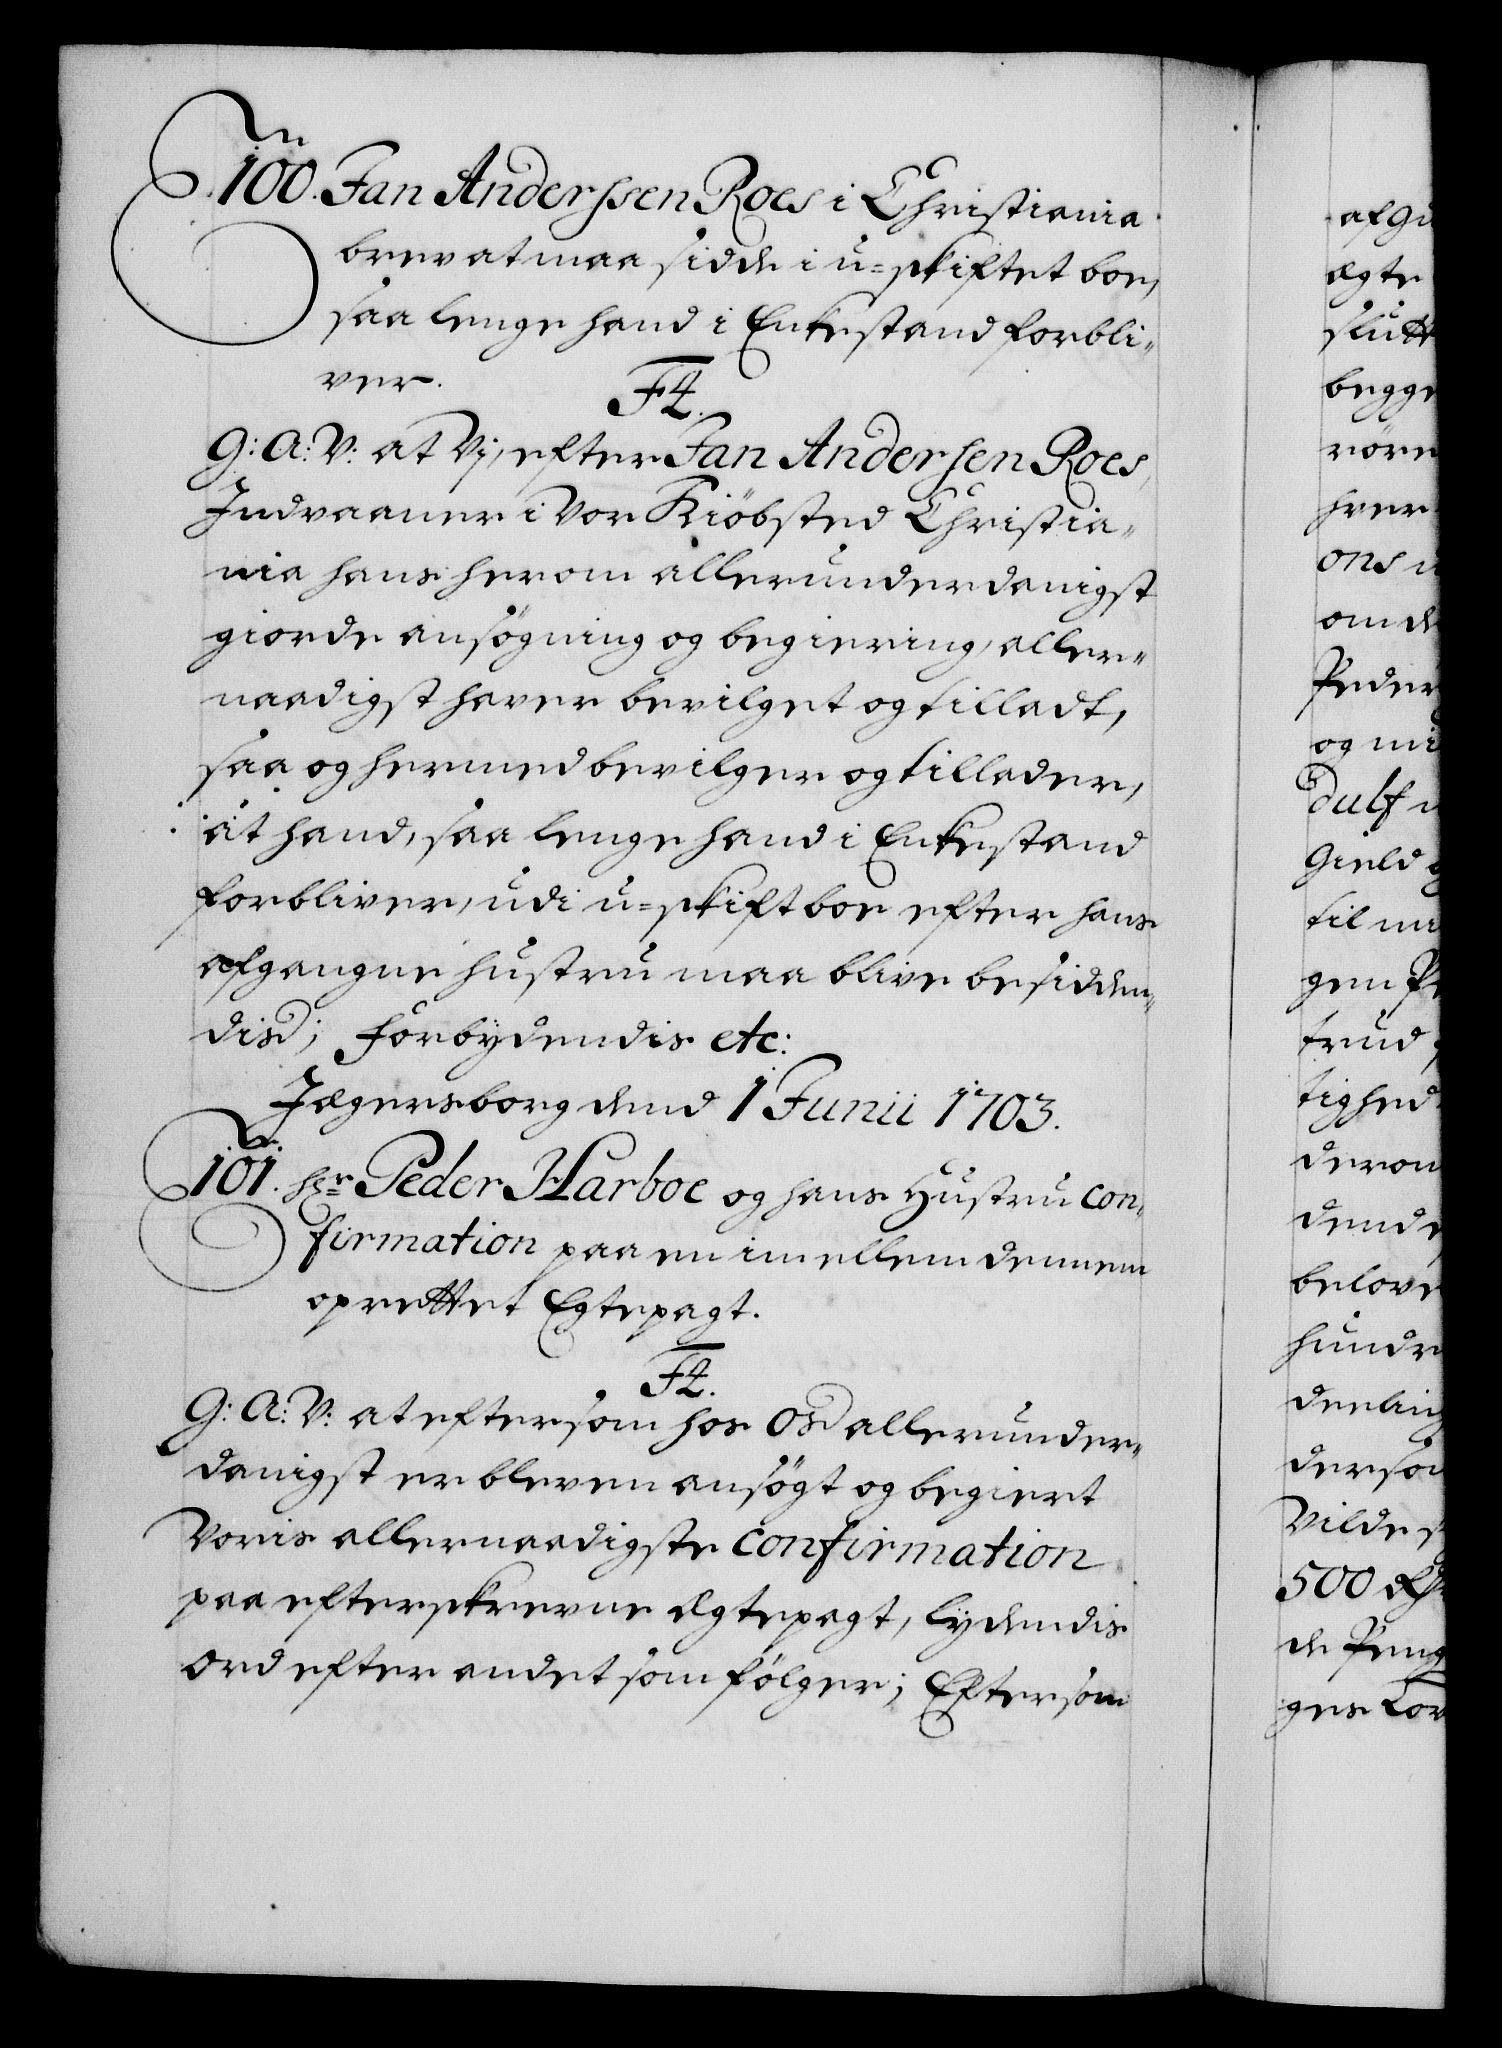 100. Jan Anderssen Roes i Christiania
brev at maa sidde i u=skiftet boe,
saa lenge hand i Enkestand forbli-
ver.
F4.
G: A: V: at Vj, efter Jan Andersen Roes,
Indvaaner i Vor Kiöbsted Christia-
nia hans herom allerunderdanigst
giorde ansøgning og begiering, aller-
naadigst haver bevilget og tilladt,
saa og hermed bevilger og tillader,
at hand, saa lenge hand i Enkestand
forbliver, udi u=skift boe efter hans
afgangne hustru maa blive besidden-
dis; Forbydendis etc:
Jægersborg dend 1 Junii 1703.
101. Hr Peder Harboe og hans Hustru con-
firmation paa en imellem dennem
oprettet Egtepagt.
F4.
G: A: V: at eftersom hos Os allerunder-
danigst er bleven ansøgt og begiert
Voris allernaadigste confirmation
paa efterskrevne Ægtepagt, lydendis
Ord efter andet som følger; Eftersom
af Gu
ægte
slutt
begge
røre
hver
ons
om de
Peder
og mi
dulf
Gield
til
gen
trud
tighed
derom
dend
belove
hundr
derso
Vilde
500
de Peng
ges Lov